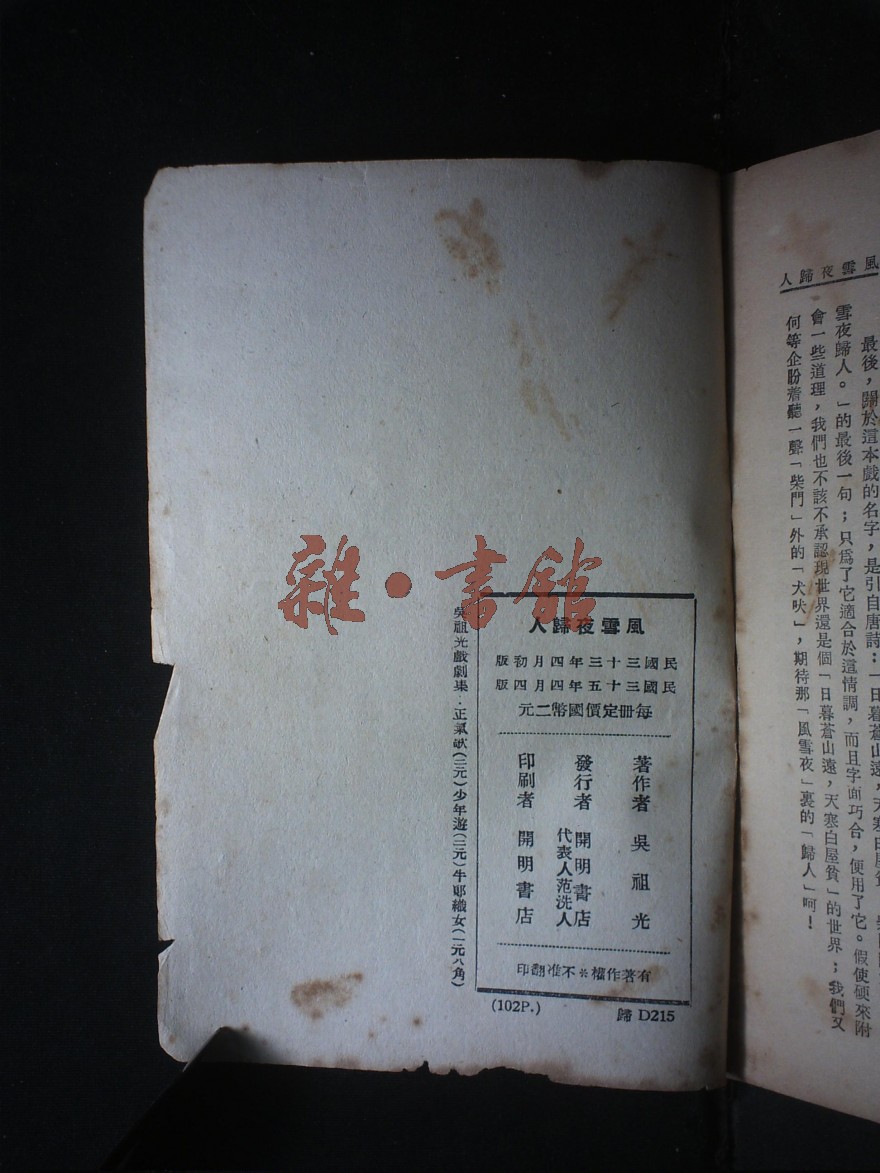 風雪夜歸人
最後，關於這本戲的名字，是引自唐詩：「日暮蒼山遠，天寒白屋貧
雪夜歸人。」的最後一句；只爲了它適合於這情調，而且字面巧合，便用了它。假使硬來附
會一些道理，我們也不該不承認現世界還是個「日暮蒼山遠，天寒白屋貧」的世界；我們又
何等企盼着聽一聲「柴門」外的「犬吠」，期待那「風雪夜」裏的「歸人」呵！
風雪夜歸人
民國三十三年四月初版
民國三十五年四月四版
每册定價國幣二元
著作者 吳祖光
發行者 開明書店
代表人范洗人
印刷者 開明書店
有著作權※不准翻印
歸 D215
(102P.)
吳祖光戲劇集：正氣歌(二元)少年遊(二元)牛郎織女(一元八角)
雜·書館